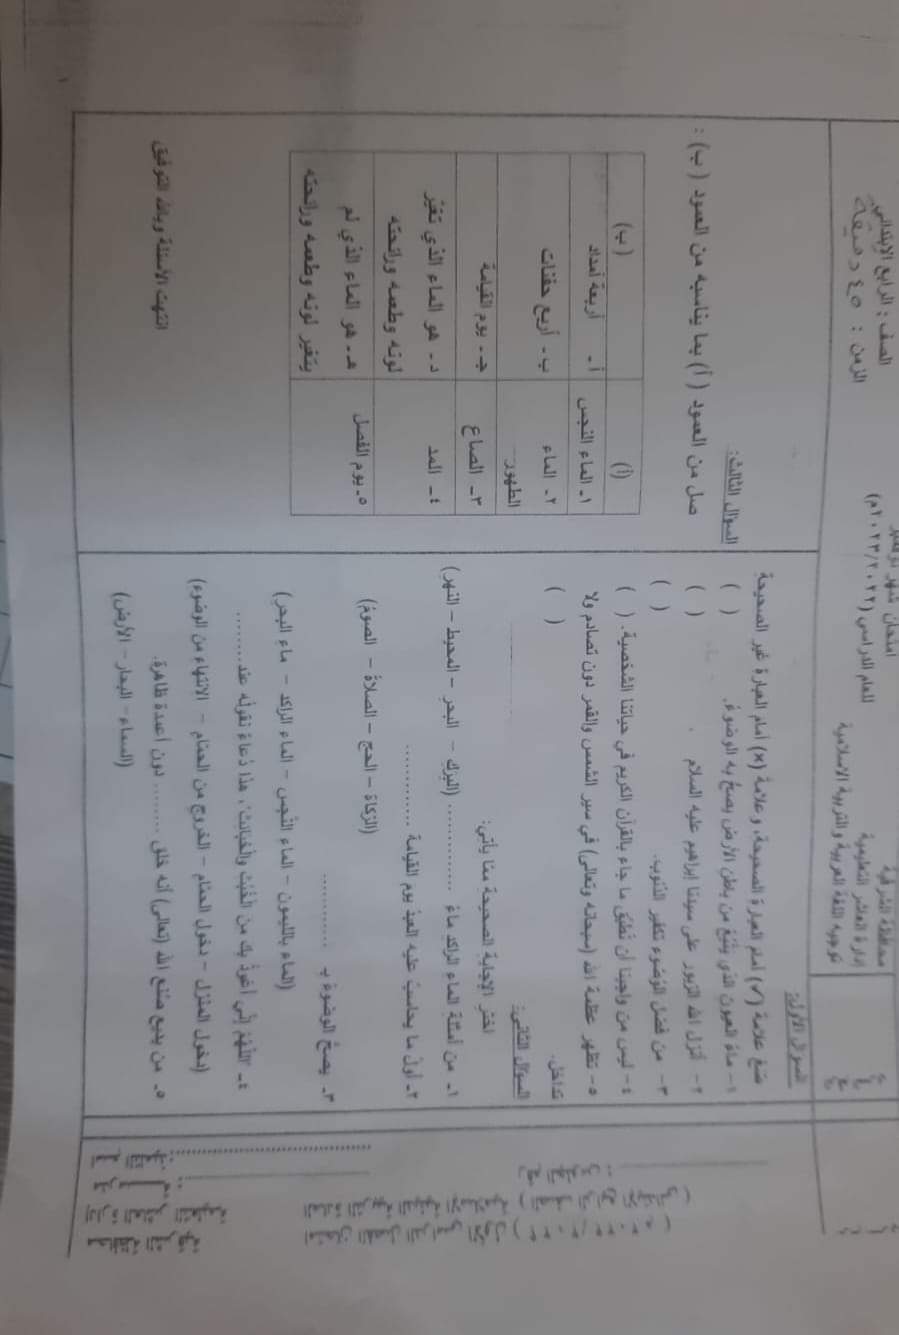 محافظة الشرقية
إدارة العاشر التعليمية
توجيه اللغة العربية والتربية الاسلامية
امتحان شهر
للعام الدراسي (٢٠٢٣/٢٠٢٢م)
الصف : الرابع الإبتدائي
الزمن : ٤٥ دقيقة
السؤال الأول:
ضع علامة (✓) أمام العبارة الصحيحة، وعلامة (×) أمام العبارة غير الصحيحة
١- ماء العيون الذي ينبع من باطن الأرض يصح به الوضوء. ( )
٢- أنزل الله الزبور على سيدنا إبراهيم عليه السلام . ( )
٣- من فضل الوضوء تكفير الذنوب. ( )
٤- ليس من واجبنا أن نطبق ما جاء بالقرآن الكريم في حياتنا الشخصية. ( )
٥- تظهر عظمة الله (سبحانه وتعالى) في سير الشمس والقمر دون تصادم ولا
تداخل. ( )
السؤال الثاني:
اختر الإجابة الصحيحة مما يأتي:
١- من أمثلة الماء الراكد ماء ............ (البرك - البحر - المحيط - النهر)
٢- أول ما يحاسب عليه العبد يوم القيامة ............
(الزكاة - الحج - الصلاة - الصوم)
٣- يصح الوضوء بـ ............
(الماء بالليمون - الماء النجس - الماء الراكد - ماء البحر)
٤- "اللهم إني أعوذ بك من الخبث والخبائث"، هذا دعاء نقوله عند.........
(دخول المنزل - دخول الحمام - الخروج من الحمام - الانتهاء من الوضوء)
٥- من بديع صنع الله (تعالى) أنه خلق ......... دون أعمدة ظاهرة.
(السماء - البحار - الأرض)
السؤال الثالث:
صل من العمود (أ) بما يناسبه من العمود (ب) :
(أ) (ب)
١- الماء النجس أ- أربعة أمداد
٢- الماء الطهور ب- أربع حفنات
٣- الصاع جـ- يوم القيامة
٤- المد د- هو الماء الذي تغير
لونه وطعمه ورائحته
٥- يوم الفصل هـ- هو الماء الذي لم
يتغير لونه وطعمه ورائحته
انتهت الأسئلة وبالله التوفيق